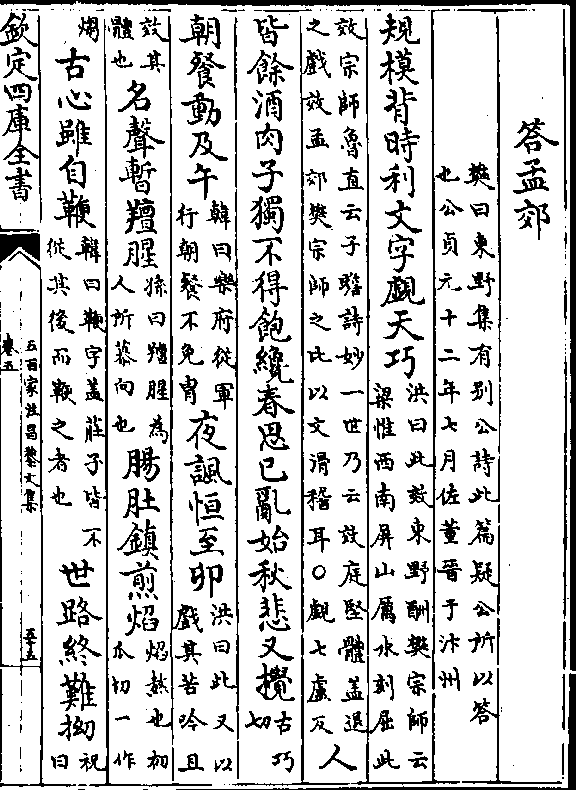 答孟郊
樊曰東野集有别公詩此篇疑公所以答
也公貞元十二年七月佐董晉于汴州
規模背時利文字覷天巧
洪曰此效東野酬樊宗師云
梁惟西南屏山厲水刻屈此
效宗師魯直云子瞻詩妙一世乃云效庭堅體蓋退
之戲效孟郊樊宗師之比以文滑稽耳○覷七慮反
人
皆餘酒肉子獨不得飽纔春思已亂始秋悲又攪
古巧
切
朝餐動及午
韓曰樂府從軍
行朝餐不免胄
夜諷恒至卯
洪曰此又以
戲其苦吟且
效其
體也
名聲暫羶腥
孫曰羶腥為
人所慕向也
腸肚鎮煎焰
焰熬也初
爪切一作
古心雖自鞭
韓曰鞭字蓋莊子皆不
從其後而鞭之者也
世路終難拗
祝
曰
欽定四庫全書
卷五
五百家注昌黎文集
五十五